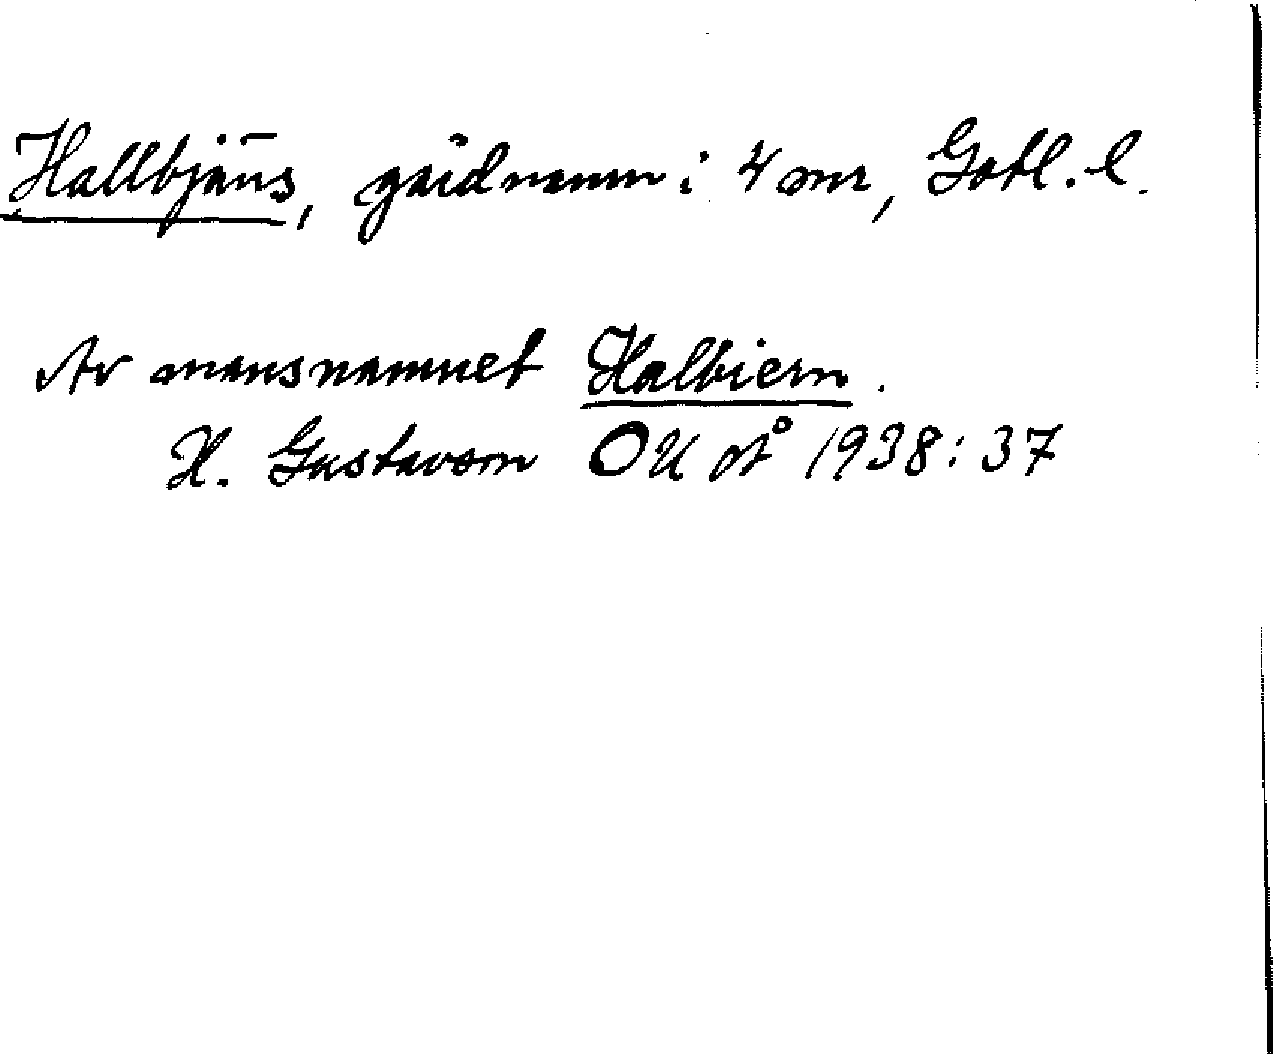 Hallbjäns, gårdnamn i 4 snr, Gotl. l.
Av mansnamnet Halbiern.
H. Gustavson OUÅ 1938:37